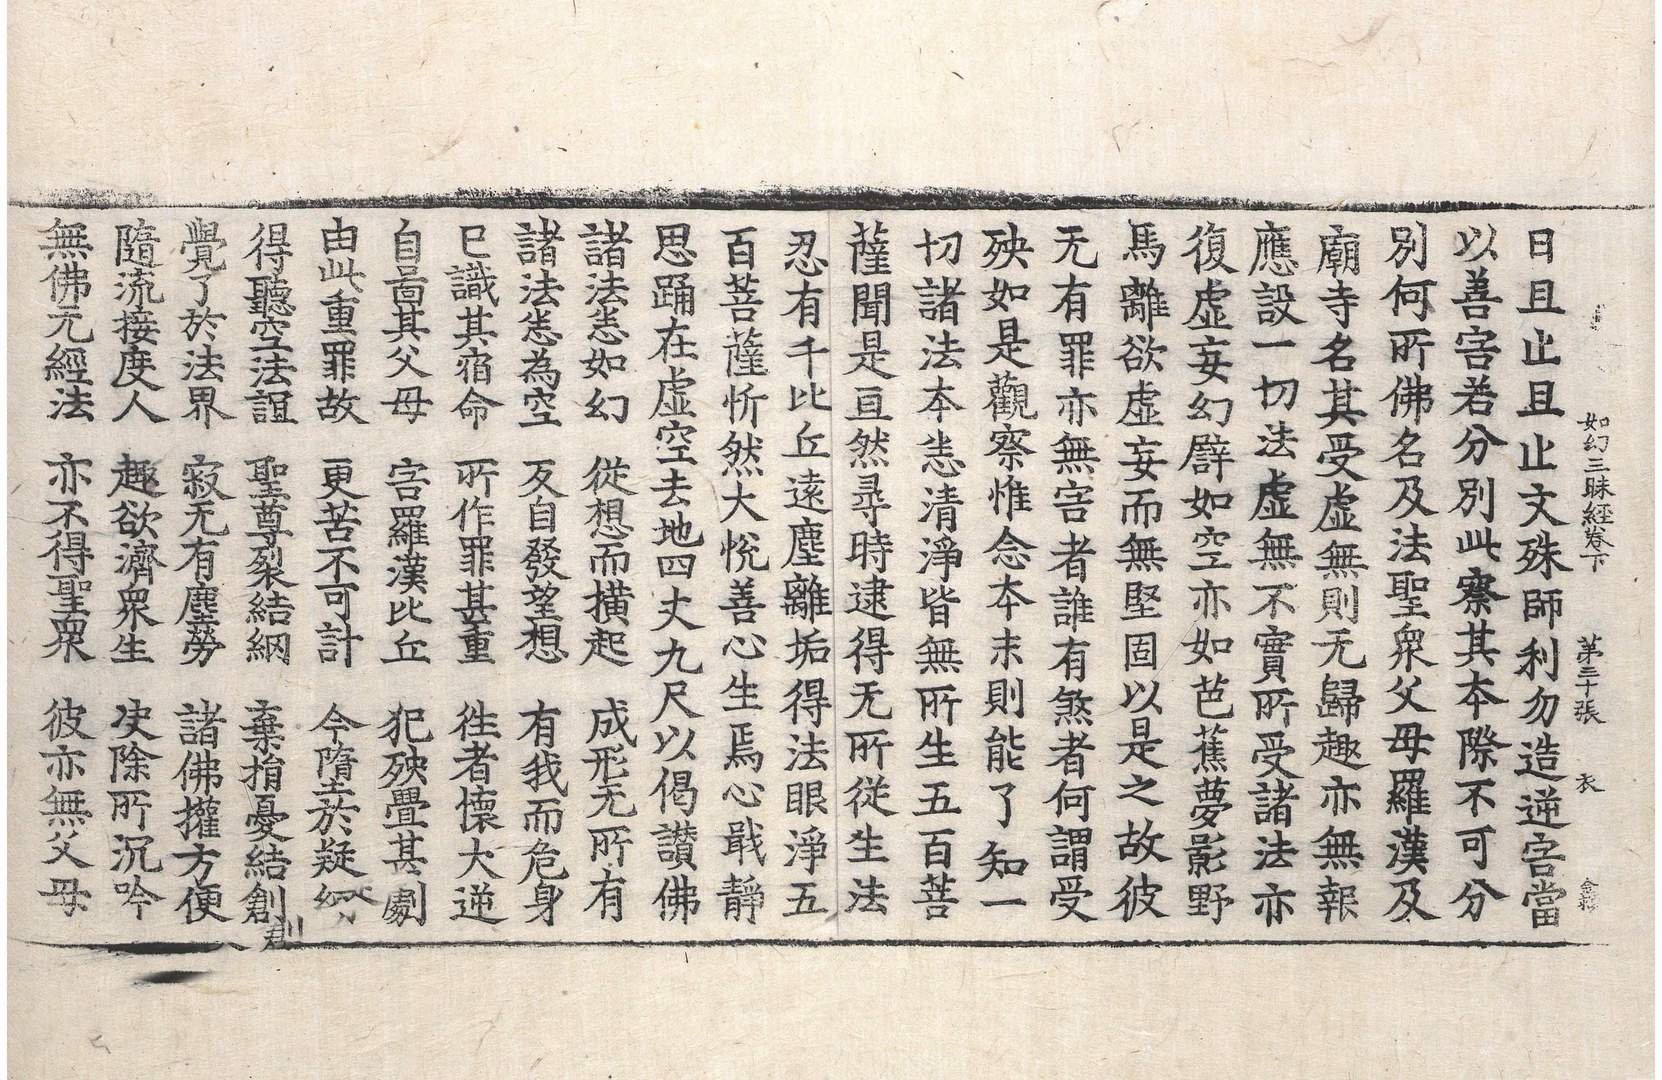 如幻三昧經卷下 第三十張 衣
曰且止且止文殊師利勿造逆害當
以善害若分別此察其本際不可分
別何所佛名及法聖衆父母羅漢及
廟寺名其受虛無則无歸趣亦無報
應設一切法虛無不實所受諸法亦
復虛妄幻譬如空亦如芭蕉夢影野
馬離欲虛妄而無堅固以是之故彼
无有罪亦無害者誰有煞者何謂受
殃如是觀察惟念本末則能了知一
切諸法本悉清淨皆無所生五百菩
薩聞是亘然尋時逮得无所從生法
忍有千比丘遠塵離垢得法眼淨五
百菩薩忻然大悅善心生焉心戢靜
思踊在虛空去地四丈九尺以偈讚佛
諸法悉如幻 從想而橫起 成形无所有
諸法悉為空 及自發望想 有我而危身
已識其宿命 所作罪甚重 往者懷大逆
自啚其父母 害羅漢比丘 犯殃舋甚劇
由此重罪故 更苦不可計 今墮在於疑網
得聽空法誼 聖尊裂結網 棄捐憂結創
覺了於法界 寂无有塵勞 諸佛權方便
隨流接度人 趣欲濟衆生 決除所沉吟
無佛无經法 亦不得聖衆 彼亦無父母